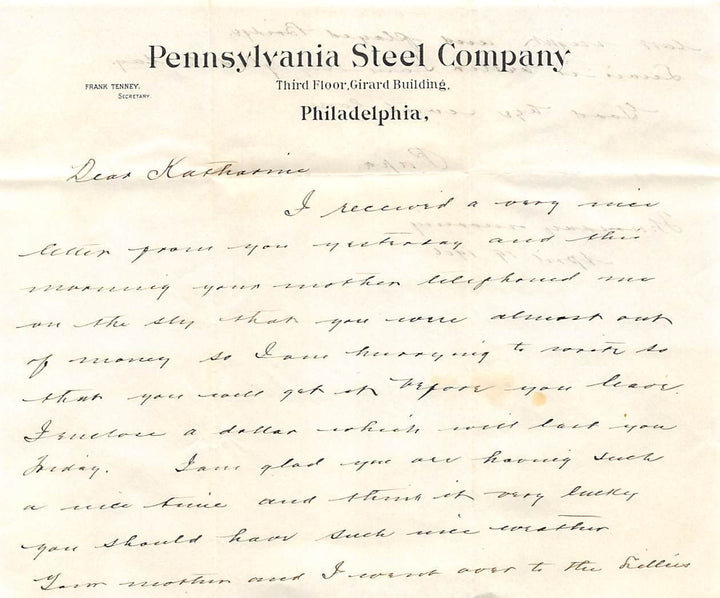 Pennsylvania Steel Company
FRANK TENNEY,
SECRETARY.
Third Floor, Girard Building,
Philadelphia,
Dear Katharine
I received a very nice
letter from you yesterday and this
morning your mother telephoned me
on the sly that you were almost out
of money so I am hurrying to write so
that you will get it before you leave.
I enclose a dollar which will last you
Friday. I am glad you are having such
a nice time and think it very lucky
you should have such nice weather
Your mother and I went over to the
Papa